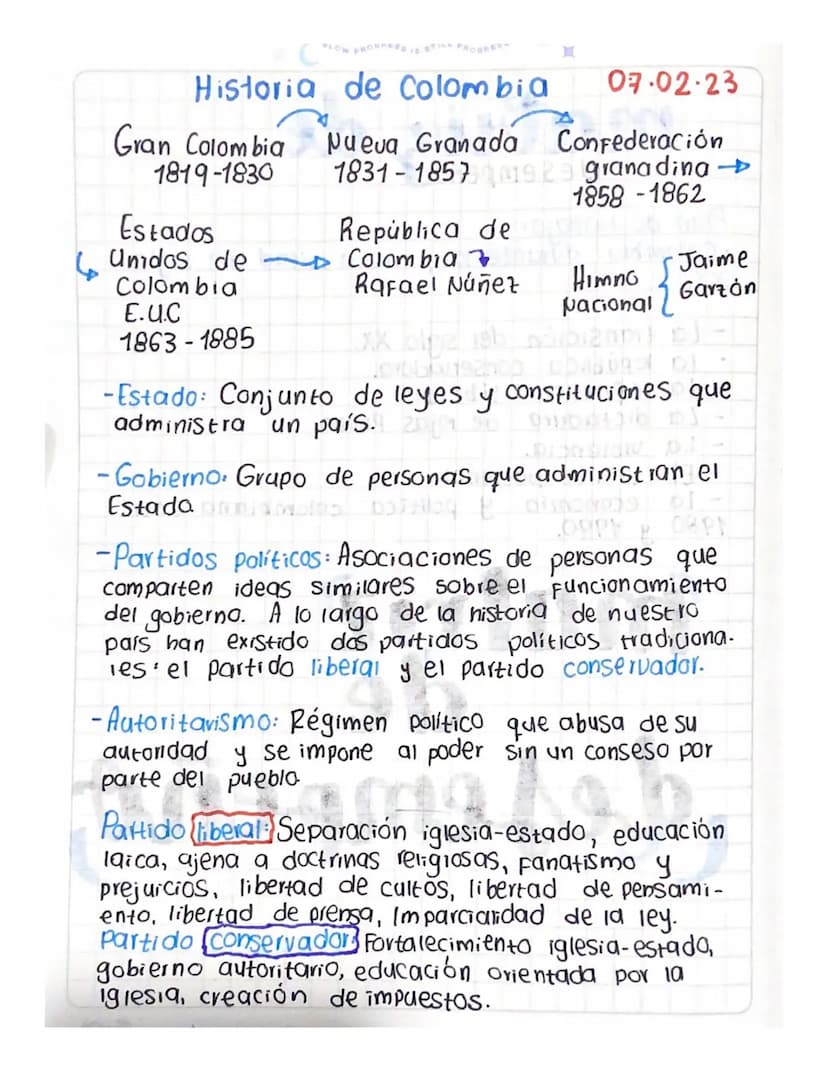 SLOW PROGRESS IS STILL PROGRESS
Historia de Colombia 07.02.23
Gran Colombia Nueva Granada Confederación
1819-1830 1831-1857 granadina
1858-1862
Estados República de
Unidos de Colombia
Colombia Rafael Núñez
E.U.C
1863-1885
Himno Nacional { Jaime Garzón
-Estado: Conjunto de leyes y constituciones que
administra un país.
-Gobierno: Grupo de personas que administran el
Estado
-Partidos políticos: Asociaciones de personas que
comparten ideas similares sobre el funcionamiento
del gobierno. A lo largo de la historia de nuestro
país han existido dos partidos políticos tradiciona-
les: el partido liberal y el partido conservador.
-Autoritavismo: Régimen político que abusa de su
autoridad y se impone al poder sin un conseso por
parte del pueblo
Partido liberal: Separación iglesia-estado, educación
laica, ajena a doctrinas religiosas, fanatismo y
prejuicios, libertad de cultos, libertad de pensami-
ento, libertad de prensa, Imparcialidad de la ley.
Partido conservador: Fortalecimiento iglesia-estado,
gobierno autoritario, educación orientada por la
iglesia, creación de impuestos.